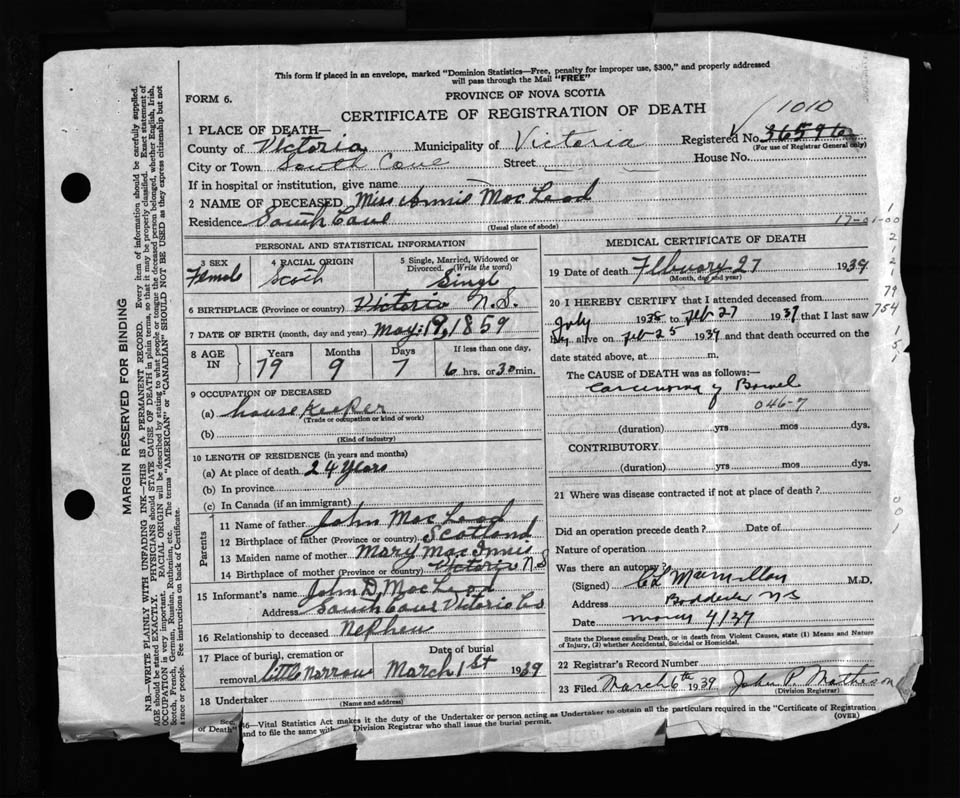 This form if placed in an envelope, marked "Dominion Statistics—Free, penalty for improper use, $300," and properly addressed
will pass through the Mail "FREE"
FORM 6.
PROVINCE OF NOVA SCOTIA
CERTIFICATE OF REGISTRATION OF DEATH
1010
1 PLACE OF DEATH—
County of Victoria Municipality of Victoria Registered No.
(For use of Registrar General only)
City or Town South Cove Street House No.
If in hospital or institution, give name
2 NAME OF DECEASED Miss Annie MacLeod
Residence South Cove
(Usual place of abode)
17-01-00
PERSONAL AND STATISTICAL INFORMATION
3 SEX Female
4 RACIAL ORIGIN Scotch
5 Single, Married, Widowed or Divorced. (Write the word) Singl
6 BIRTHPLACE (Province or country) Victoria N.S.
7 DATE OF BIRTH (month, day and year) May 19, 1859
8 AGE IN Years 79 Months 9 Days 7 If less than one day, 6 hrs. or 30 min.
9 OCCUPATION OF DECEASED
(a) house keeper
(Trade or occupation or kind of work)
(b)
(Kind of industry)
10 LENGTH OF RESIDENCE (in years and months)
(a) At place of death 24 Years
(b) In province
(c) In Canada (if an immigrant)
Parents
11 Name of father John MacLeod
12 Birthplace of father (Province or country) Scotland
13 Maiden name of mother Mary MacInnis
14 Birthplace of mother (Province or country) Victoria N S
15 Informant's name John D. MacLeod
Address South Cove Victoria Co
16 Relationship to deceased Nephew
17 Place of burial, cremation or removal little Narrow Date of burial March 1st 1939
18 Undertaker
(Name and address)
MEDICAL CERTIFICATE OF DEATH
19 Date of death February 27 1939
(Month, day and year)
20 I HEREBY CERTIFY that I attended deceased from
July 1938 to Feb 27 1939 that I last saw
alive on Feb 25 1939 and that death occurred on the
date stated above, at m.
The CAUSE OF DEATH was as follows:—
Carcinoma of Bowel
046-7
(duration) yrs mos dys.
CONTRIBUTORY
(duration) yrs mos dys.
21 Where was disease contracted if not at place of death?
Did an operation precede death? Date of
Nature of operation
Was there an autopsy
(Signed) C L Macmillan M.D.
Address Baddeck N S
Date
State the Disease causing Death, or in death from Violent Causes, state (1) Means and Nature
of Injury, (2) whether Accidental, Suicidal or Homicidal.
22 Registrar's Record Number
23 Filed March 6th 1939 John P. Matheson
(Division Registrar)
79
754
MARGIN RESERVED FOR BINDING
N.B.—WRITE PLAINLY WITH UNFADING INK—THIS IS A PERMANENT RECORD. Every item of information should be carefully supplied.
AGE should be stated EXACTLY. PHYSICIANS should STATE CAUSE OF DEATH in plain terms, so that it may be properly classified. Exact statement of
OCCUPATION is very important. RACIAL ORIGIN will be described by stating to what people or tongue the deceased person belonged, whether English, Irish,
Scotch, French, German, Russian, Ruthenian, etc. The terms "AMERICAN" or "CANADIAN" SHOULD NOT BE USED as they express citizenship but not
race or people. See instructions on back of Certificate.
—Vital Statistics Act makes it the duty of the Undertaker or person acting as Undertaker to obtain all the particulars required in the "Certificate of Registration
of Death" and to file the same with Division Registrar who shall issue the burial permit.
(OVER)